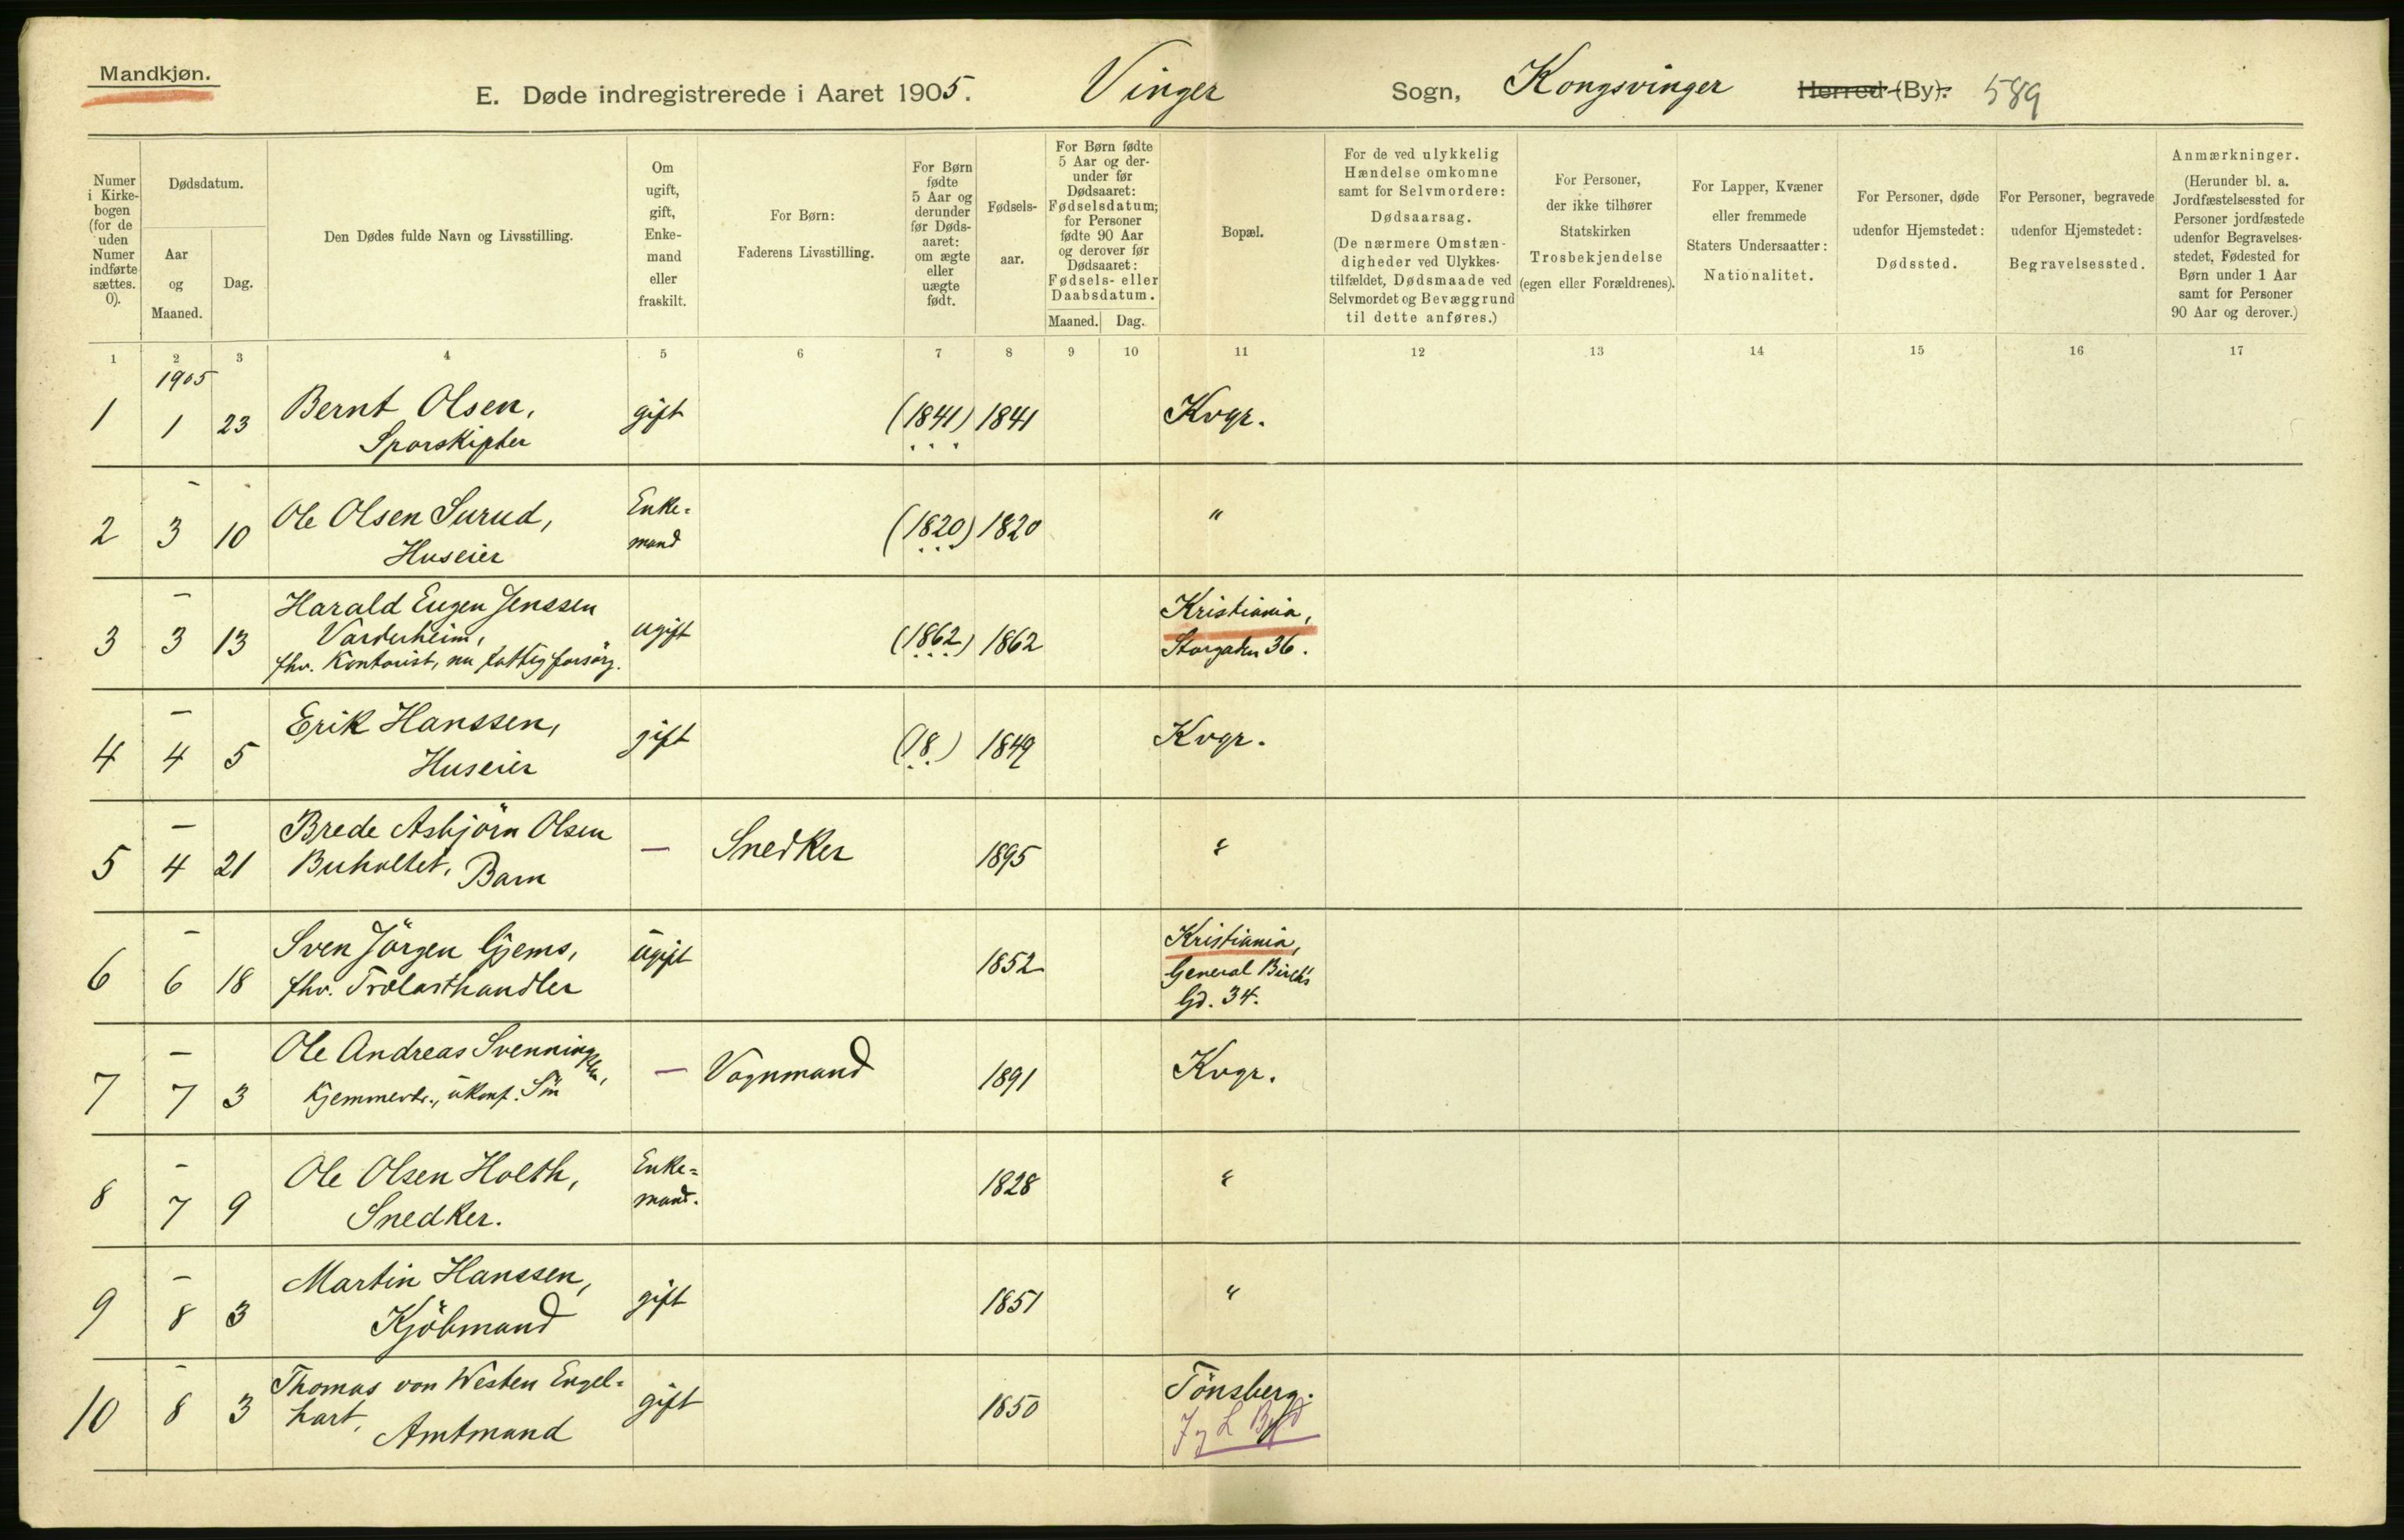 Mandkjøn.
E. Døde indregistrerede i Aaret 1905. Vinger Sogn, Kongsvinger Herred (By). 589
Numer i Kirkebogen (for de uden Numer indførte sættes. 0).
Dødsdatum.
Aar og Maaned.
Dag.
Den Dødes fulde Navn og Livsstilling.
Om ugift, gift, Enkemand eller fraskilt.
For Børn: Faderens Livsstilling.
For Børn fødte 5 Aar og derunder før Dødsaaret: om ægte eller uægte født.
Fødselsaar.
For Børn fødte 5 Aar og derunder før Dødsaaret: Fødselsdatum; for Personer fødte 90 Aar og derover før Dødsaaret: Fødsels- eller Daabsdatum.
Maaned. Dag.
Bopæl.
For de ved ulykkelig Hændelse omkomne samt for Selvmordere: Dødsaarsag. (De nærmere Omstændigheder ved Ulykkestilfældet, Dødsmaade ved Selvmordet og Bevæggrund til dette anføres.)
For Personer, der ikke tilhører Statskirken Trosbekjendelse (egen eller Forældrenes).
For Lapper, Kvæner eller fremmede Staters Undersaatter: Nationalitet.
For Personer, døde udenfor Hjemstedet: Dødssted.
For Personer, begravede udenfor Hjemstedet: Begravelsessted.
Anmærkninger. (Herunder bl. a. Jordfæstelsessted for Personer jordfæstede udenfor Begravelsesstedet, Fødested for Børn under 1 Aar samt for Personer 90 Aar og derover.)
1 2 3 4 5 6 7 8 9 10 11 12 13 14 15 16 17
1905
1 1 23 Bernt Olsen, gift (1841) 1841 Kvgr.
Sporskifter
–
2 3 10 Ole Olsen Surud, Enke= (1820) 1820 "
Huseier mand
–
Harald Eugen Jenssen Kristiania,
3 3 13 Varderheim, ugift (1862) 1862 Storgaden 36.
fhv. Kontorist, nu fattigforsørg.
–
4 4 5 Erik Hanssen, gift (18 ) 1849 Kvgr.
Huseier
–
Brede Asbjörn Olsen
5 4 21 Buholtet, Barn – Snedker 1895 "
–
Sven Jörgen Gjems, ugift Kristiania,
6 6 18 fhv. Trælasthandler 1852 General Birch's
Gd. 34.
–
Ole Andreas Svenningsen,
7 7 3 Gjemmerbr., ukonf. Sön – Vognmand 1891 Kvgr.
–
8 7 9 Ole Olsen Holth, Enke= 1828 "
Snedker. mand.
–
9 8 3 Martin Hanssen, gift 1851 "
Kjöbmand
–
Thomas von Westen Engel= Tönsberg.
10 8 3 hart, gift 1850
Amtmand